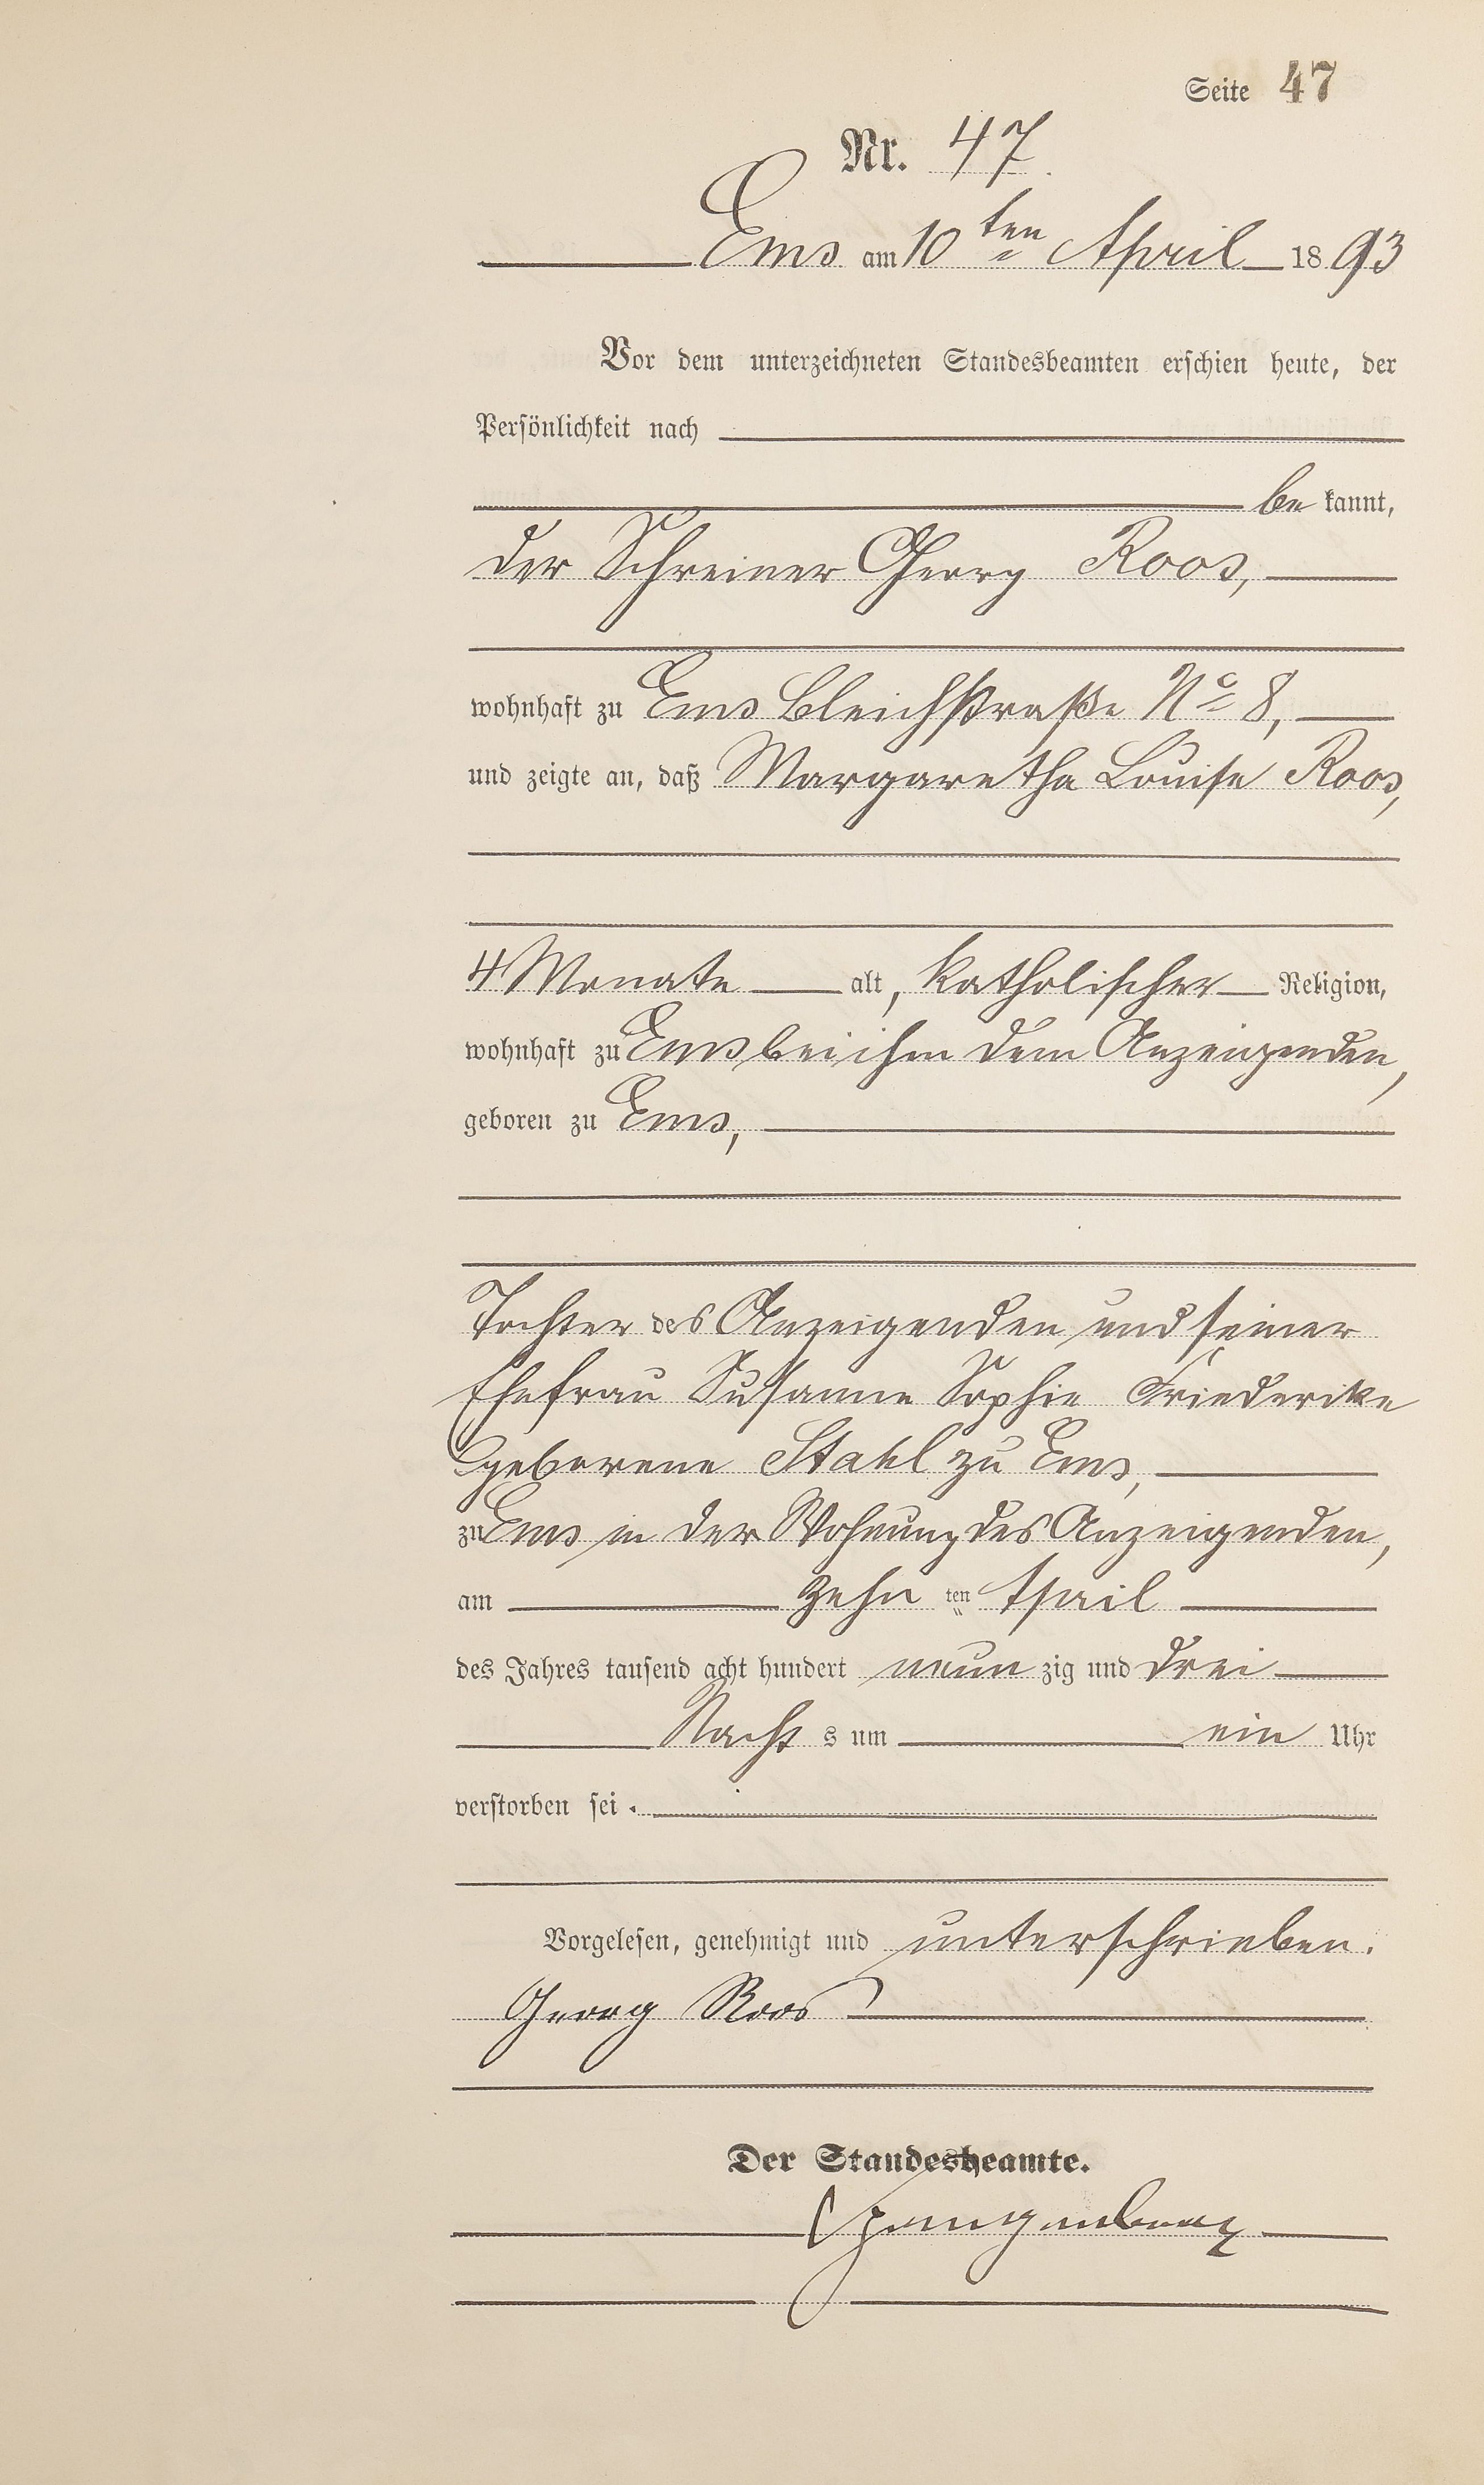 Seite 47
Nr. 47.
Ems am 10ten April 1893
Vor dem unterzeichneten Standesbeamten erschien heute, der
Persönlichkeit nach
be kannt,
der Schreiner Georg Roos,
wohnhaft zu Ems Bleichstraße No 8,
und zeigte an, daß Margaretha Louise Roos,
4 Monate alt, katholischer Religion,
wohnhaft zu Ems bei ihm dem Anzeigenden,
geboren zu Ems,
Tochter des Anzeigenden und seiner
Ehefrau Susanne Sophie Friederike
geborene Stahl zu Ems,
zu Ems in der Wohnung des Anzeigenden,
am zehn ten April
des Jahres tausend acht hundert neun zig und drei
Nacht s um ein Uhr
verstorben sei.
Vorgelesen, genehmigt und unterschrieben.
Georg Roos
Der Standesbeamte.